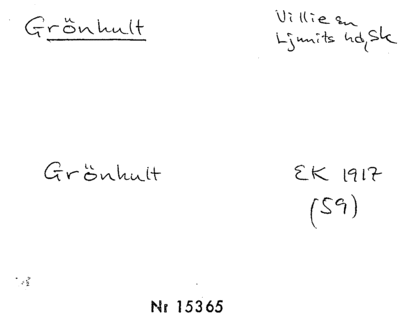 Grönhult
Villie sn
Ljunits hd, Sk
Grönhult
EK 1917
(59)
Nr 15365